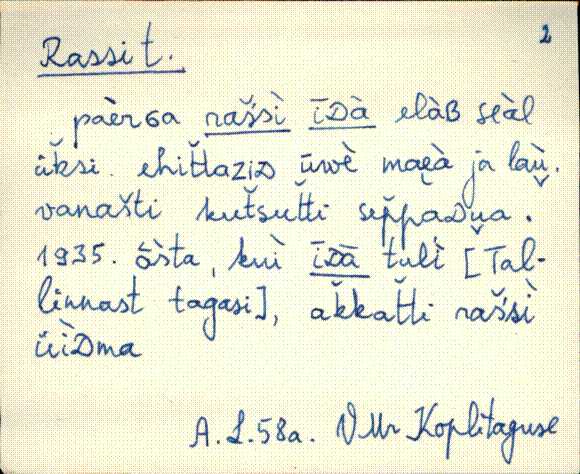 2
Rassi t.
pàerGa rašsì īDà elàB seàl
ǖksi. ehiťťazıD ūwè maeà ja laù.
vanašti kuťsuťti seppaDua.
1935. āsta, kuì īDà tuli [Tal-
linnast tagasi], akkaťti rašsì
üìDma
A. L. 58a. VMr Koplitaguse